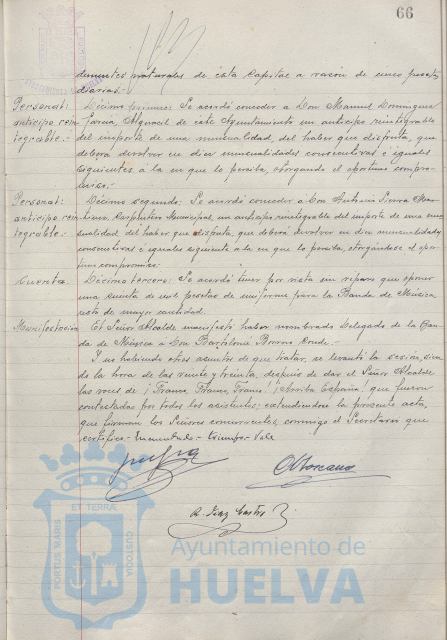 66
dementes naturales de esta Capital a razón de cinco pesetas
diarias.-
Personal:
anticipo rein
tegrable.-
Décimo primero: Se acordó conceder a Don Manuel Dominguez
Garcia, Alguacil de este Ayuntamiento un anticipo reintegrable
del importe de una mensualidad, del haber que disfruta, que
deberá devolver en diez mensualidades consecutivas e iguales
siguientes a la en que lo perciba, otorgando el oportuno compro-
miso.-
Personal:
anticipo rein
tegrable.-
Décimo segundo: Se acordó conceder a Don Antonio
Carpintero Municipal, un anticipo reintegrable del importe de una men-
sualidad del haber que disfruta, que deberá devolver en diez mensualidades
consecutivas e iguales siguiente a la en que lo perciba, otorgándose el opor-
tuno compromiso.-
Cuenta
Décimo tercero: Se acordó tener por vista sin reparo que oponer
una cuenta de mil pesetas de uniforme para la Banda de Música
resto de mayor cantidad.
Manifestacion
El Señor Alcalde manifestó haber nombrado Delegado de la Ban-
da de Música a Don Bartolomé Conde.-
I no habiendo otros asuntos de que tratar, se levantó la sesión, siendo
la hora de las veinte y treinta, despues de dar el Señor Alcalde
las voces de ¡Franco, Franco, Franco! ¡Arriba España! que fueron
contestadas por todos los asistentes; extendiéndose la presente acta,
que firman los Señores concurrentes, conmigo el Secretario que
certifico.- Enmendado - - Vale
R. Diaz Castro
PORTUS MARIS
ET TERRÆ
CUSTODIA
Ayuntamiento de
HUELVA